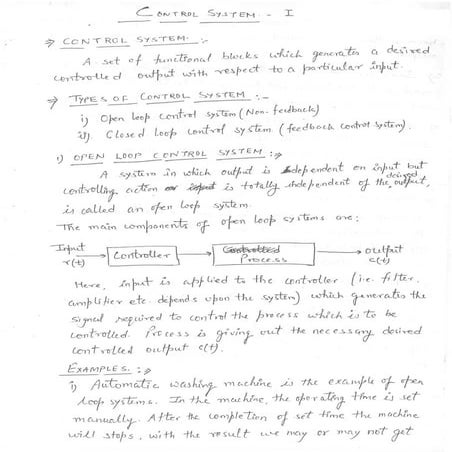 CONTROL SYSTEM - I
⇒ CONTROL SYSTEM :-
A set of functional blocks which generates a desired
controlled output with respect to a particular input.
⇒ TYPES OF CONTROL SYSTEM :-
i) Open loop control system (Non-feedback)
ii) Closed loop control system (feedback control system).
1) OPEN LOOP CONTROL SYSTEM :⇒
A system in which output is dependent on input but
controlling action or input is totally independent of the desired output,
is called an open loop system.
The main components of open loop systems are:
Input r(t) → Controller → Controlled Process → output c(t)
Here, input is applied to the controller (i.e. filter,
amplifier etc. depends upon the system) which generates the
signal required to control the process which is to be
controlled. Process is giving out the necessary desired
controlled output c(t).
EXAMPLES :⇒
i) Automatic washing machine is the example of open
loop systems. In the machine, the operating time is set
manually. After the completion of set time the machine
will stops, with the result we may or may not get